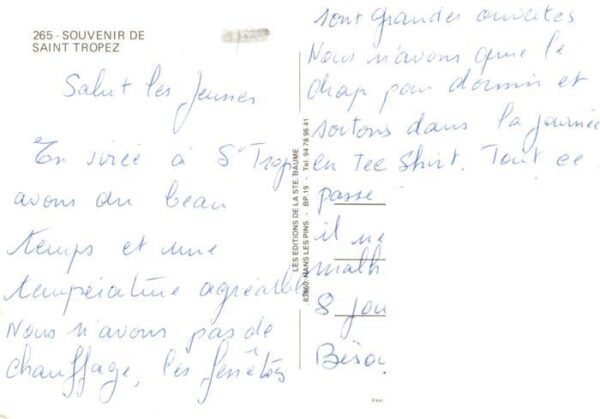 265 - SOUVENIR DE
SAINT TROPEZ
Salut les Jeunes
En virée à St Trop
avons du beau
temps et une
température agréable
Nous n'avons pas de
chauffage, les fenêtres
LES EDITIONS DE LA STE. BAUME
83860 NANS LES PINS - BP.19 - Tel. 94 78 96 41
sont grandes ouvertes
Nous n'avons que le
drap pour dormir et
sortons dans la journée
en Tee Shirt. Tout ce
passe
il ne
malh
8 jou
Bisou